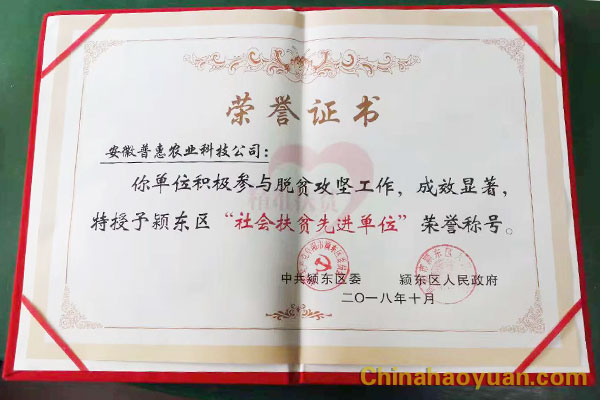 荣誉证书
安徽普惠农业科技公司：
你单位积极参与脱贫攻坚工作，成效显著，
特授予颍东区“社会扶贫先进单位”荣誉称号。
中共颍东区委 颍东区人民政府
二〇一八年十月
Chinahaoyuan.com